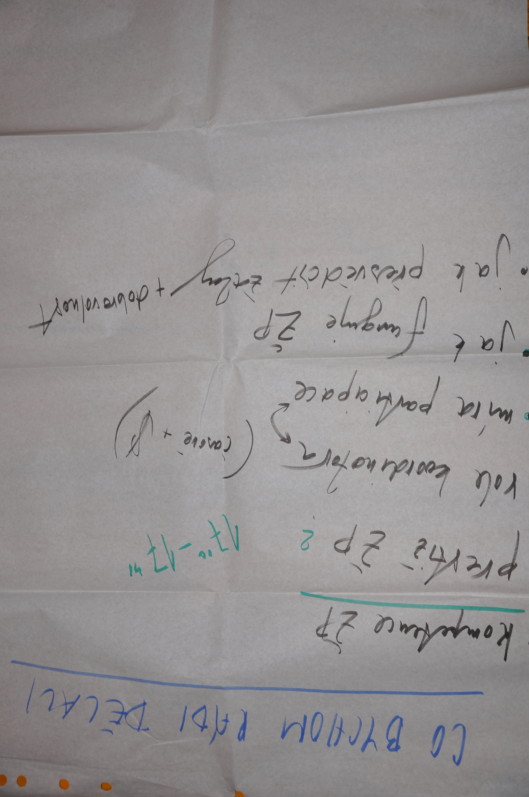 CO BYCHOM RÁDI DĚLALI
kompetence ŽP
prestiž ŽP ?
role koordinátora
• míra participace
• jak funguje ŽP
• jak přesvědčit žáky + dobrovolnost